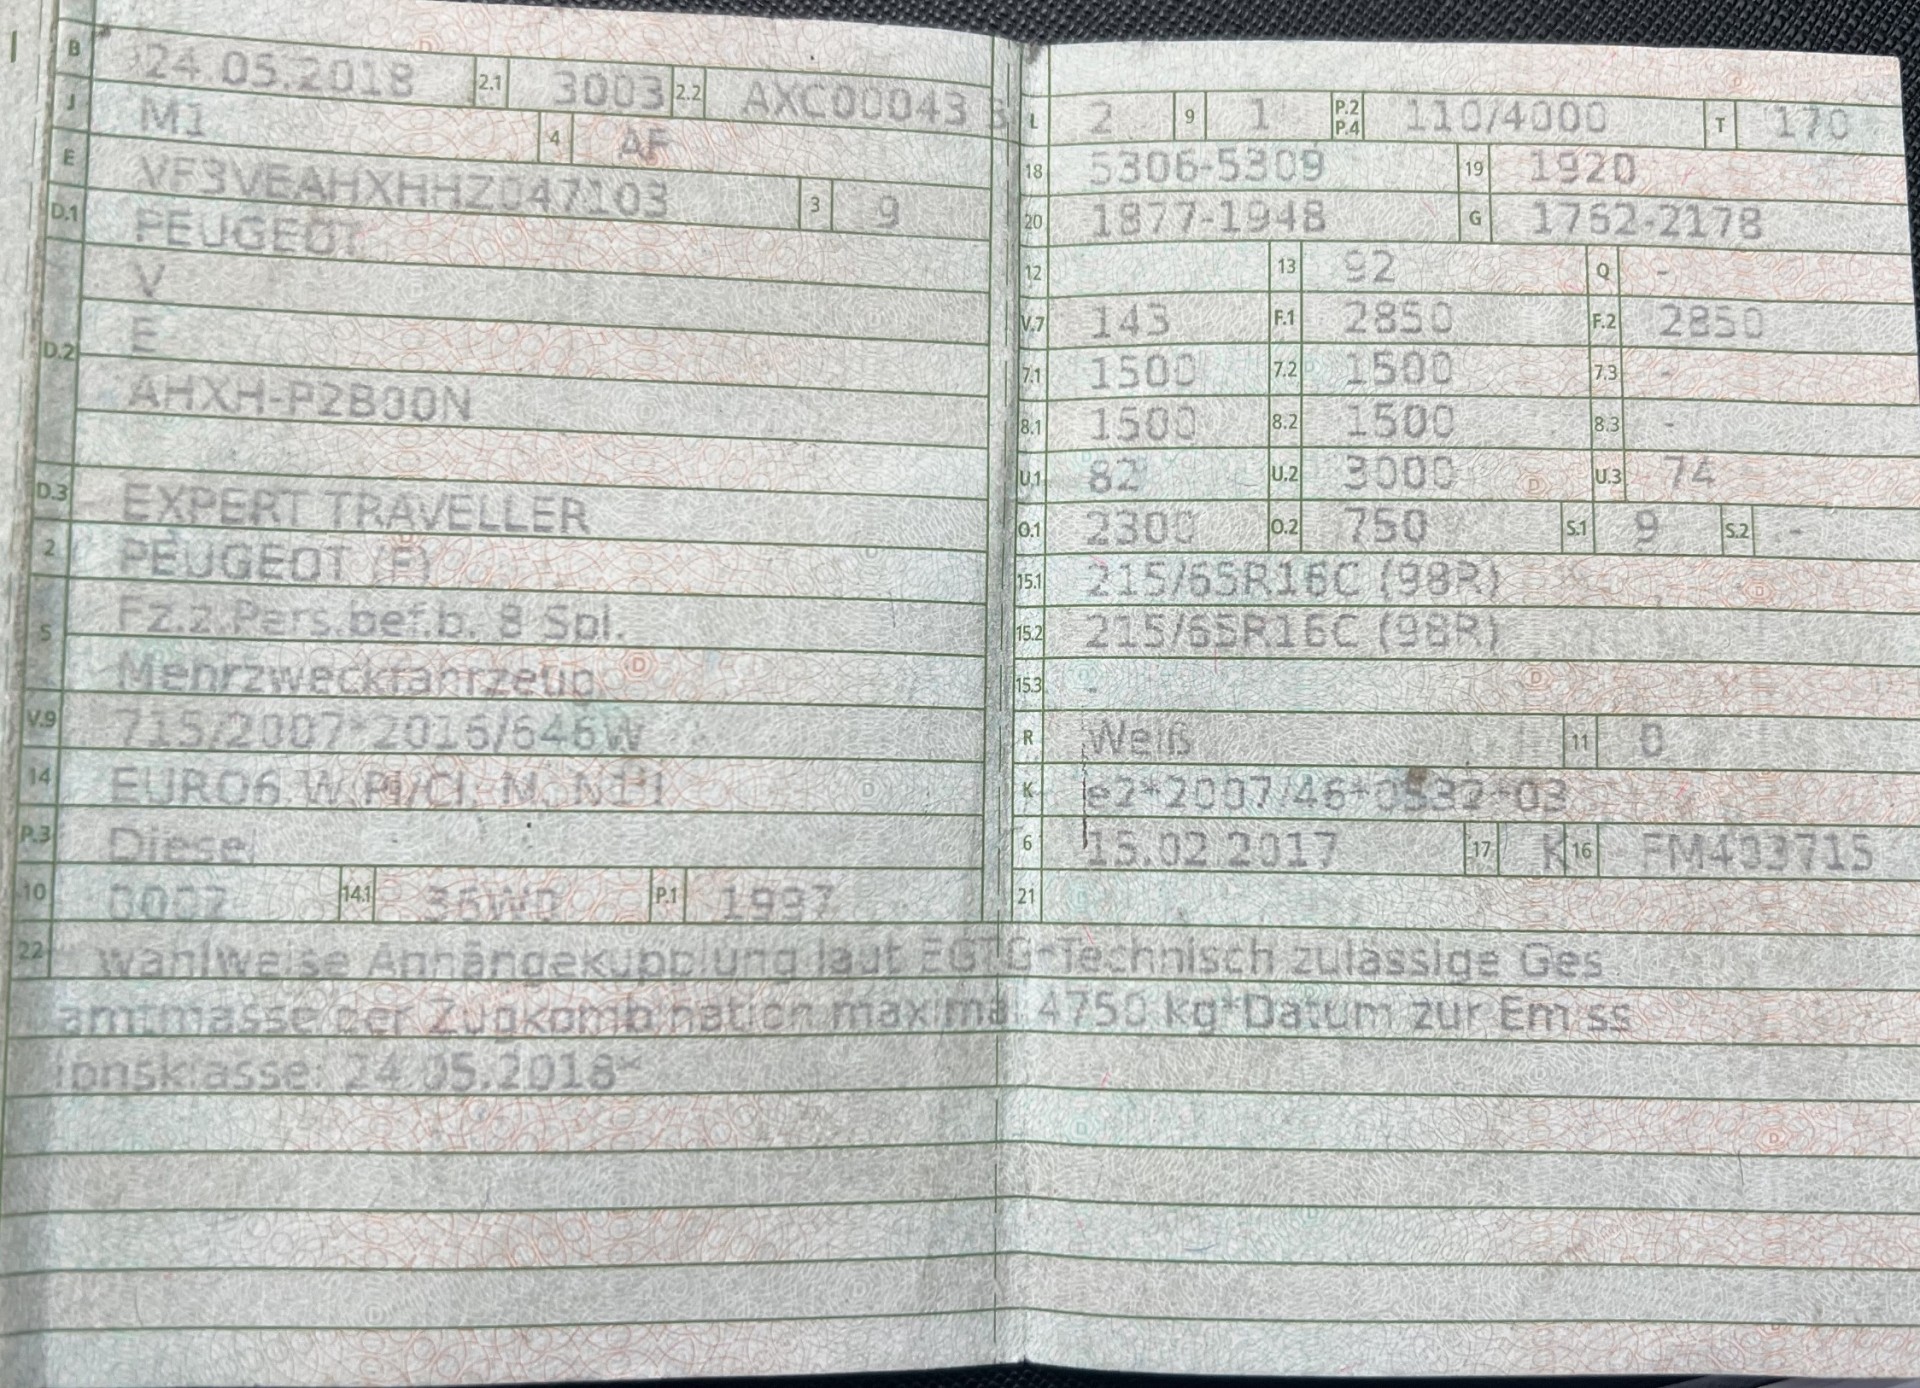 B 24.05.2018 2.1 3003 2.2 AXC00043 8
J M1 4 AF
E VF3VEAHXHHZ047103 3 9
D.1 PEUGEOT
V
D.2 E
AHXH-P2B00N
D.3 EXPERT TRAVELLER
2 PEUGEOT (F)
5 Fz.z.Pers.bef.b. 8 Spl.
Mehrzweckfahrzeug
V.9 715/2007*2016/646W
14 EURO6 W,PI/CI, M, N1 I
P.3 Diesel
10 0002 14.1 36W0 P.1 1997
L 2 9 1 P.2 P.4 110/4000 T 170
18 5306-5309 19 1920
20 1877-1948 G 1762-2178
12 13 92 Q -
V.7 143 F.1 2850 F.2 2850
7.1 1500 7.2 1500 7.3 -
8.1 1500 8.2 1500 8.3 -
U.1 82 U.2 3000 U.3 74
O.1 2300 O.2 750 S.1 9 S.2 -
15.1 215/65R16C (98R)
15.2 215/65R16C (98R)
15.3 -
R Weiß 11 0
K e2*2007/46*0532*03
6 15.02.2017 17 K 16 FM493715
21
22 wahlweise Anhängekupplung laut EGTG*Technisch zulässige Ges
amtmasse der Zugkombination maximal 4750 kg*Datum zur Emiss
ionsklasse: 24.05.2018*